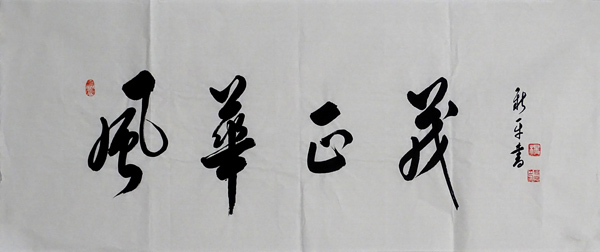 風華正茂
平書